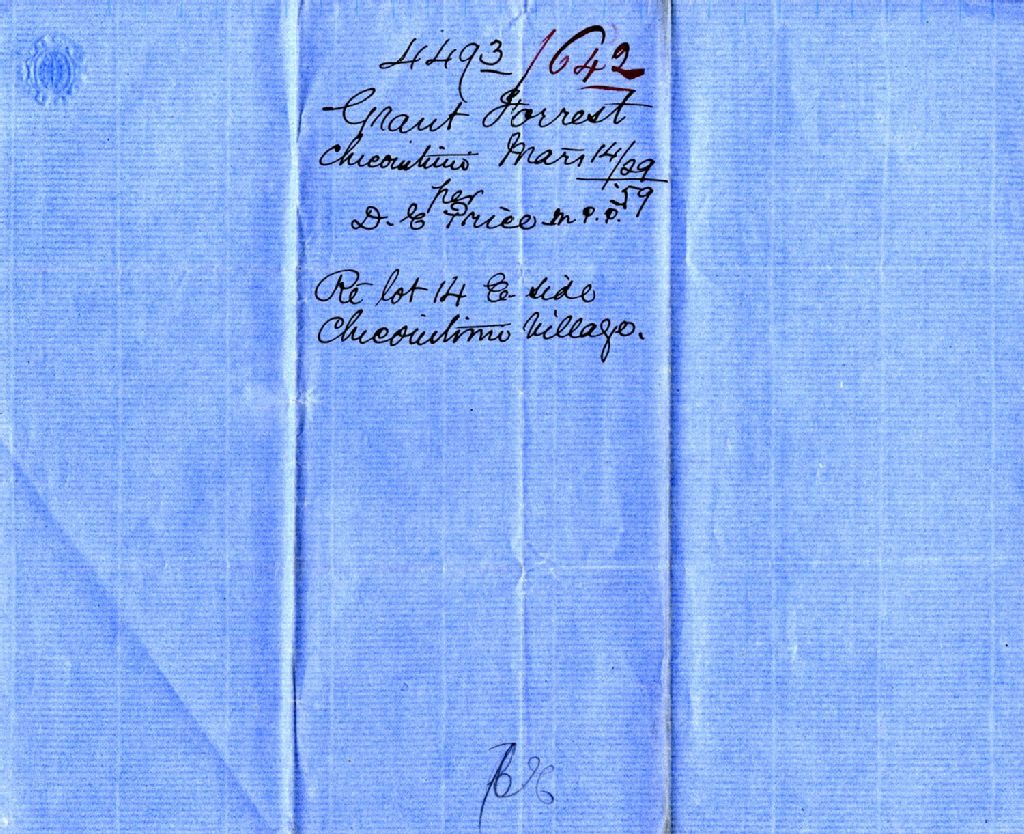 4493/642
Grant Forrest
Chicoutimi Mars 14/29
59
per
D. E Price M.P.P.
Re lot 14 E side
Chicoutimi Village.